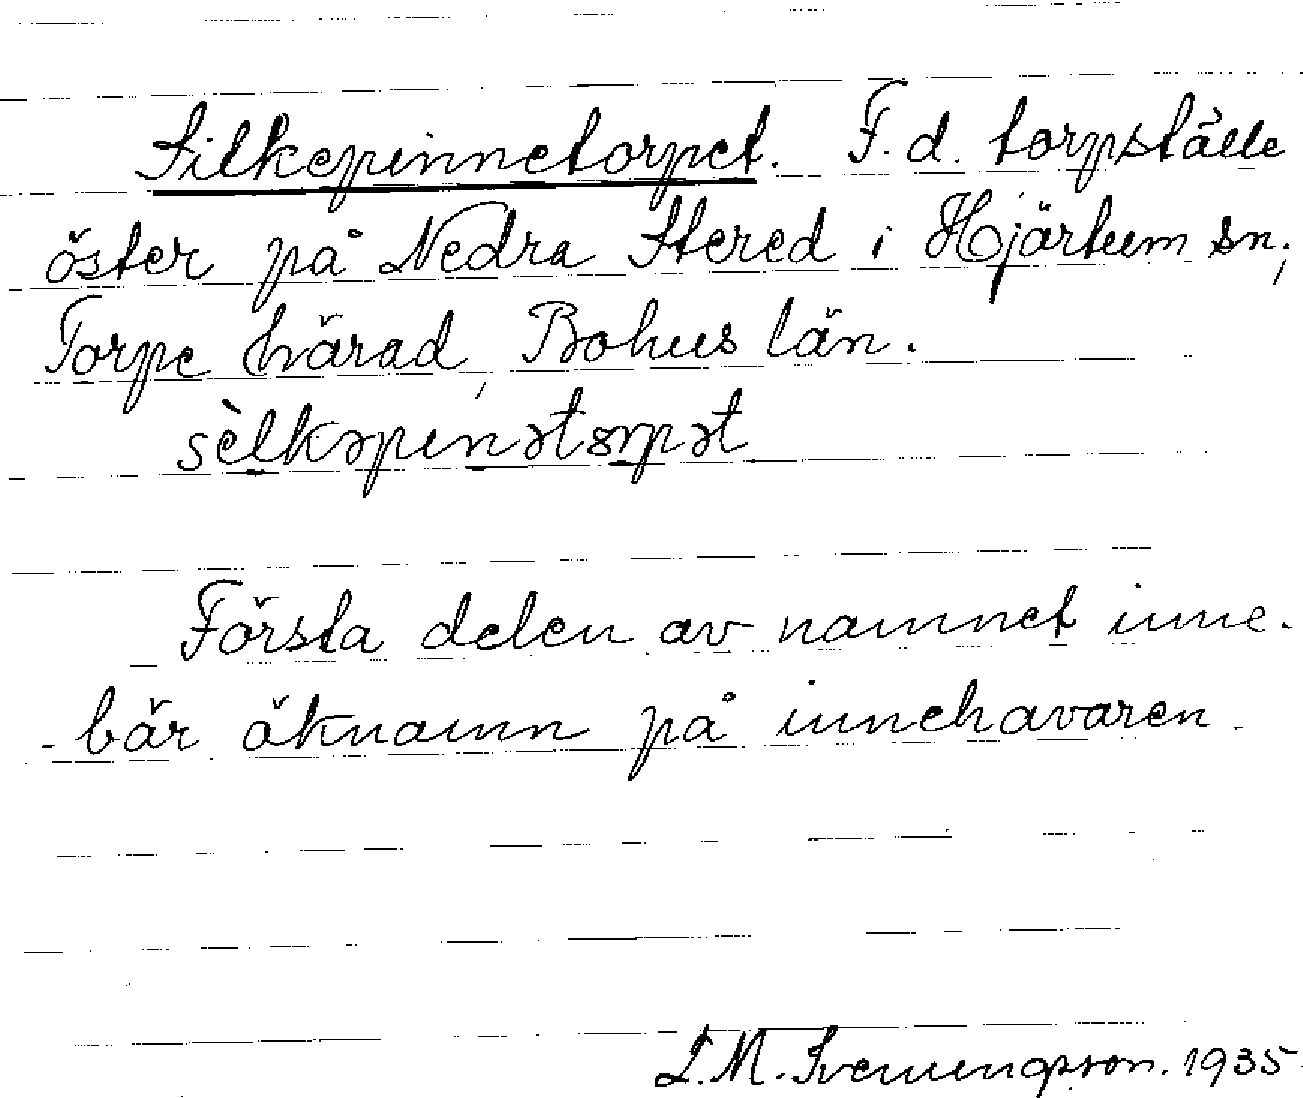 Silkepinnetorpet. F.d. torpställe
öster på Nedra Stered i Hjärtum sn,
Torpe härad, Bohus län.
sèlkəpinətɔrpət
Första delen av namnet inne-
bär öknamn på innehavaren.
L.M. Svenungsson. 1935